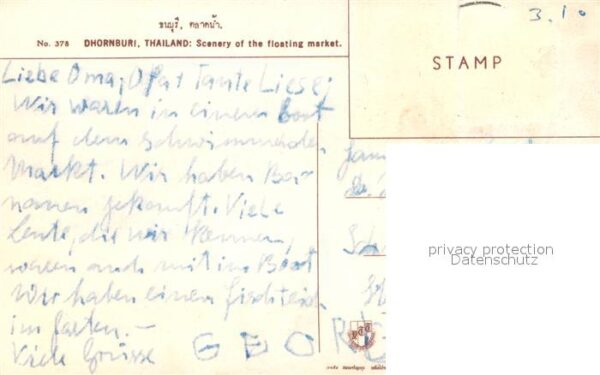 ธนบุรี, ตลาดน้ำ.
No. 378 DHORNBURI, THAILAND: Scenery of the floating market.
3.10
STAMP
Liebe Oma, Opa + Tante Liese,
Wir waren in einem boot
auf dem schwimmenden
Markt. Wir haben Ba-
nanen gekauft. Viele
Leute, die wir kennen,
waren auch mit im Boot
Wir haben einen Fischteich
im Garten. —
Viele Grüsse GEORG
privacy protection
Datenschutz